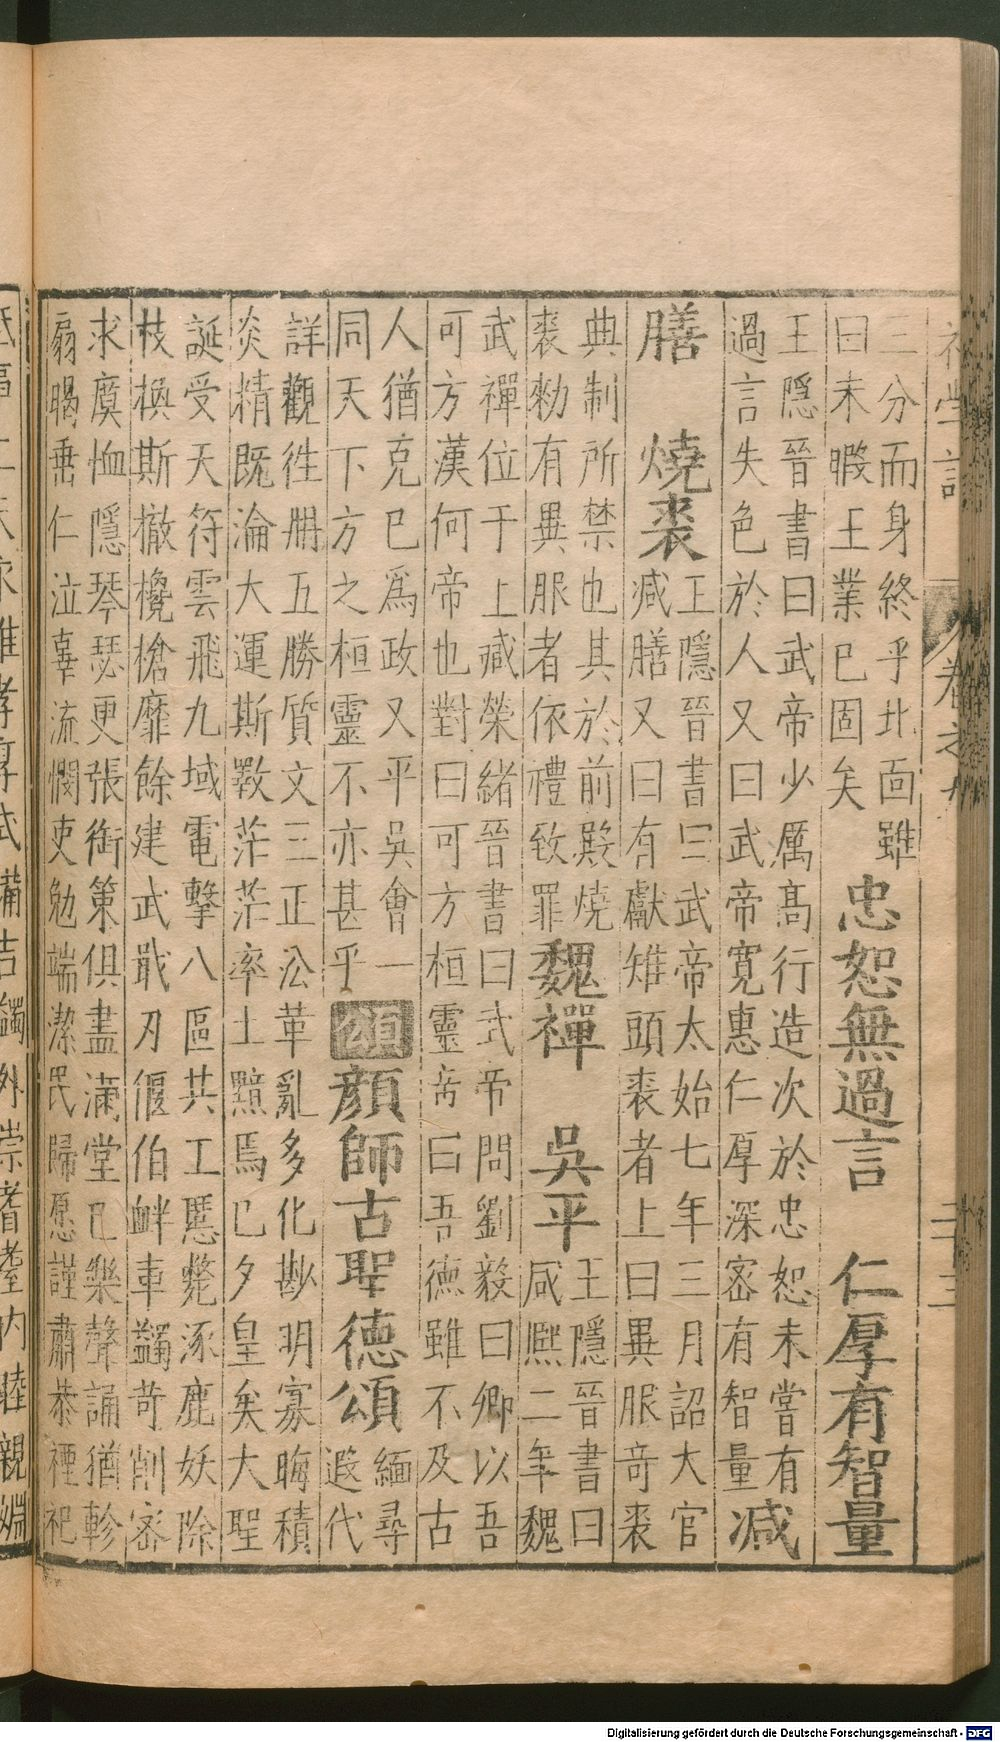 初學記
卷之九
二十三
二分而身終乎北面雖
曰未暇王業已固矣
忠恕無過言 仁厚有智量
王隱晉書曰武帝少厲高行造次於忠恕未嘗有
過言失色於人又曰武帝寬惠仁厚深密有智量
減
膳 燒裘
王隱晉書曰武帝太始七年三月詔大官
減膳又曰有獻雉頭裘者上曰異服奇裘
典制所禁也其於前殿燒
裘勑有異服者依禮致罪
魏禪 吳平
王隱晉書曰
咸熙二年魏
武禪位于上臧榮緒晉書曰武帝問劉毅曰卿以吾
可方漢何帝也對曰可方桓靈帝曰吾德雖不及古
人猶克已爲政又平吳會一
同天下方之桓靈不亦甚乎
頌
顏師古聖德頌
緬尋
遐代
詳觀徃册五勝質文三正沿革亂多化尠明寡晦積
炎精既淪大運斯斁茫茫率土黯焉已夕皇矣大聖
誕受天符雲飛九域電擊八區共工慝斃涿鹿妖除
枝換斯撤欃槍靡餘建武戢刃偃伯衅車蠲苛削密
求瘼恤隱琴瑟更張銜策俱盡滿堂已樂聲誦猶軫
扇暍垂仁泣辜流憫吏勉端潔民歸愿謹肅恭禋祀
唯孝享式備吉蠲外崇耆耋内睦親姻
Digitalisierung gefördert durch die Deutsche Forschungsgemeinschaft - DFG